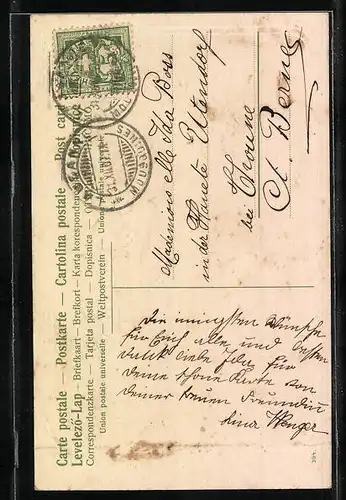 Carte postale — Postkarte — Cartolina postale — Post card
Levelező-Lap — Briefkaart — Brefkort — Karta korespondencyjna
Correspondenzkarte. Tarjeta postal — Dopisnica —
Union postale universelle — Weltpostverein — Union postale universelle
Mademoiselle Ida Boss
in der Uetendorf
bei Thoune
Ct. Berne
Die innigsten Wünsche
für Euch alle und besten
Dank liebe Ida für
deine schöne Karte von
deiner treuen Freundin
Lina Wenger